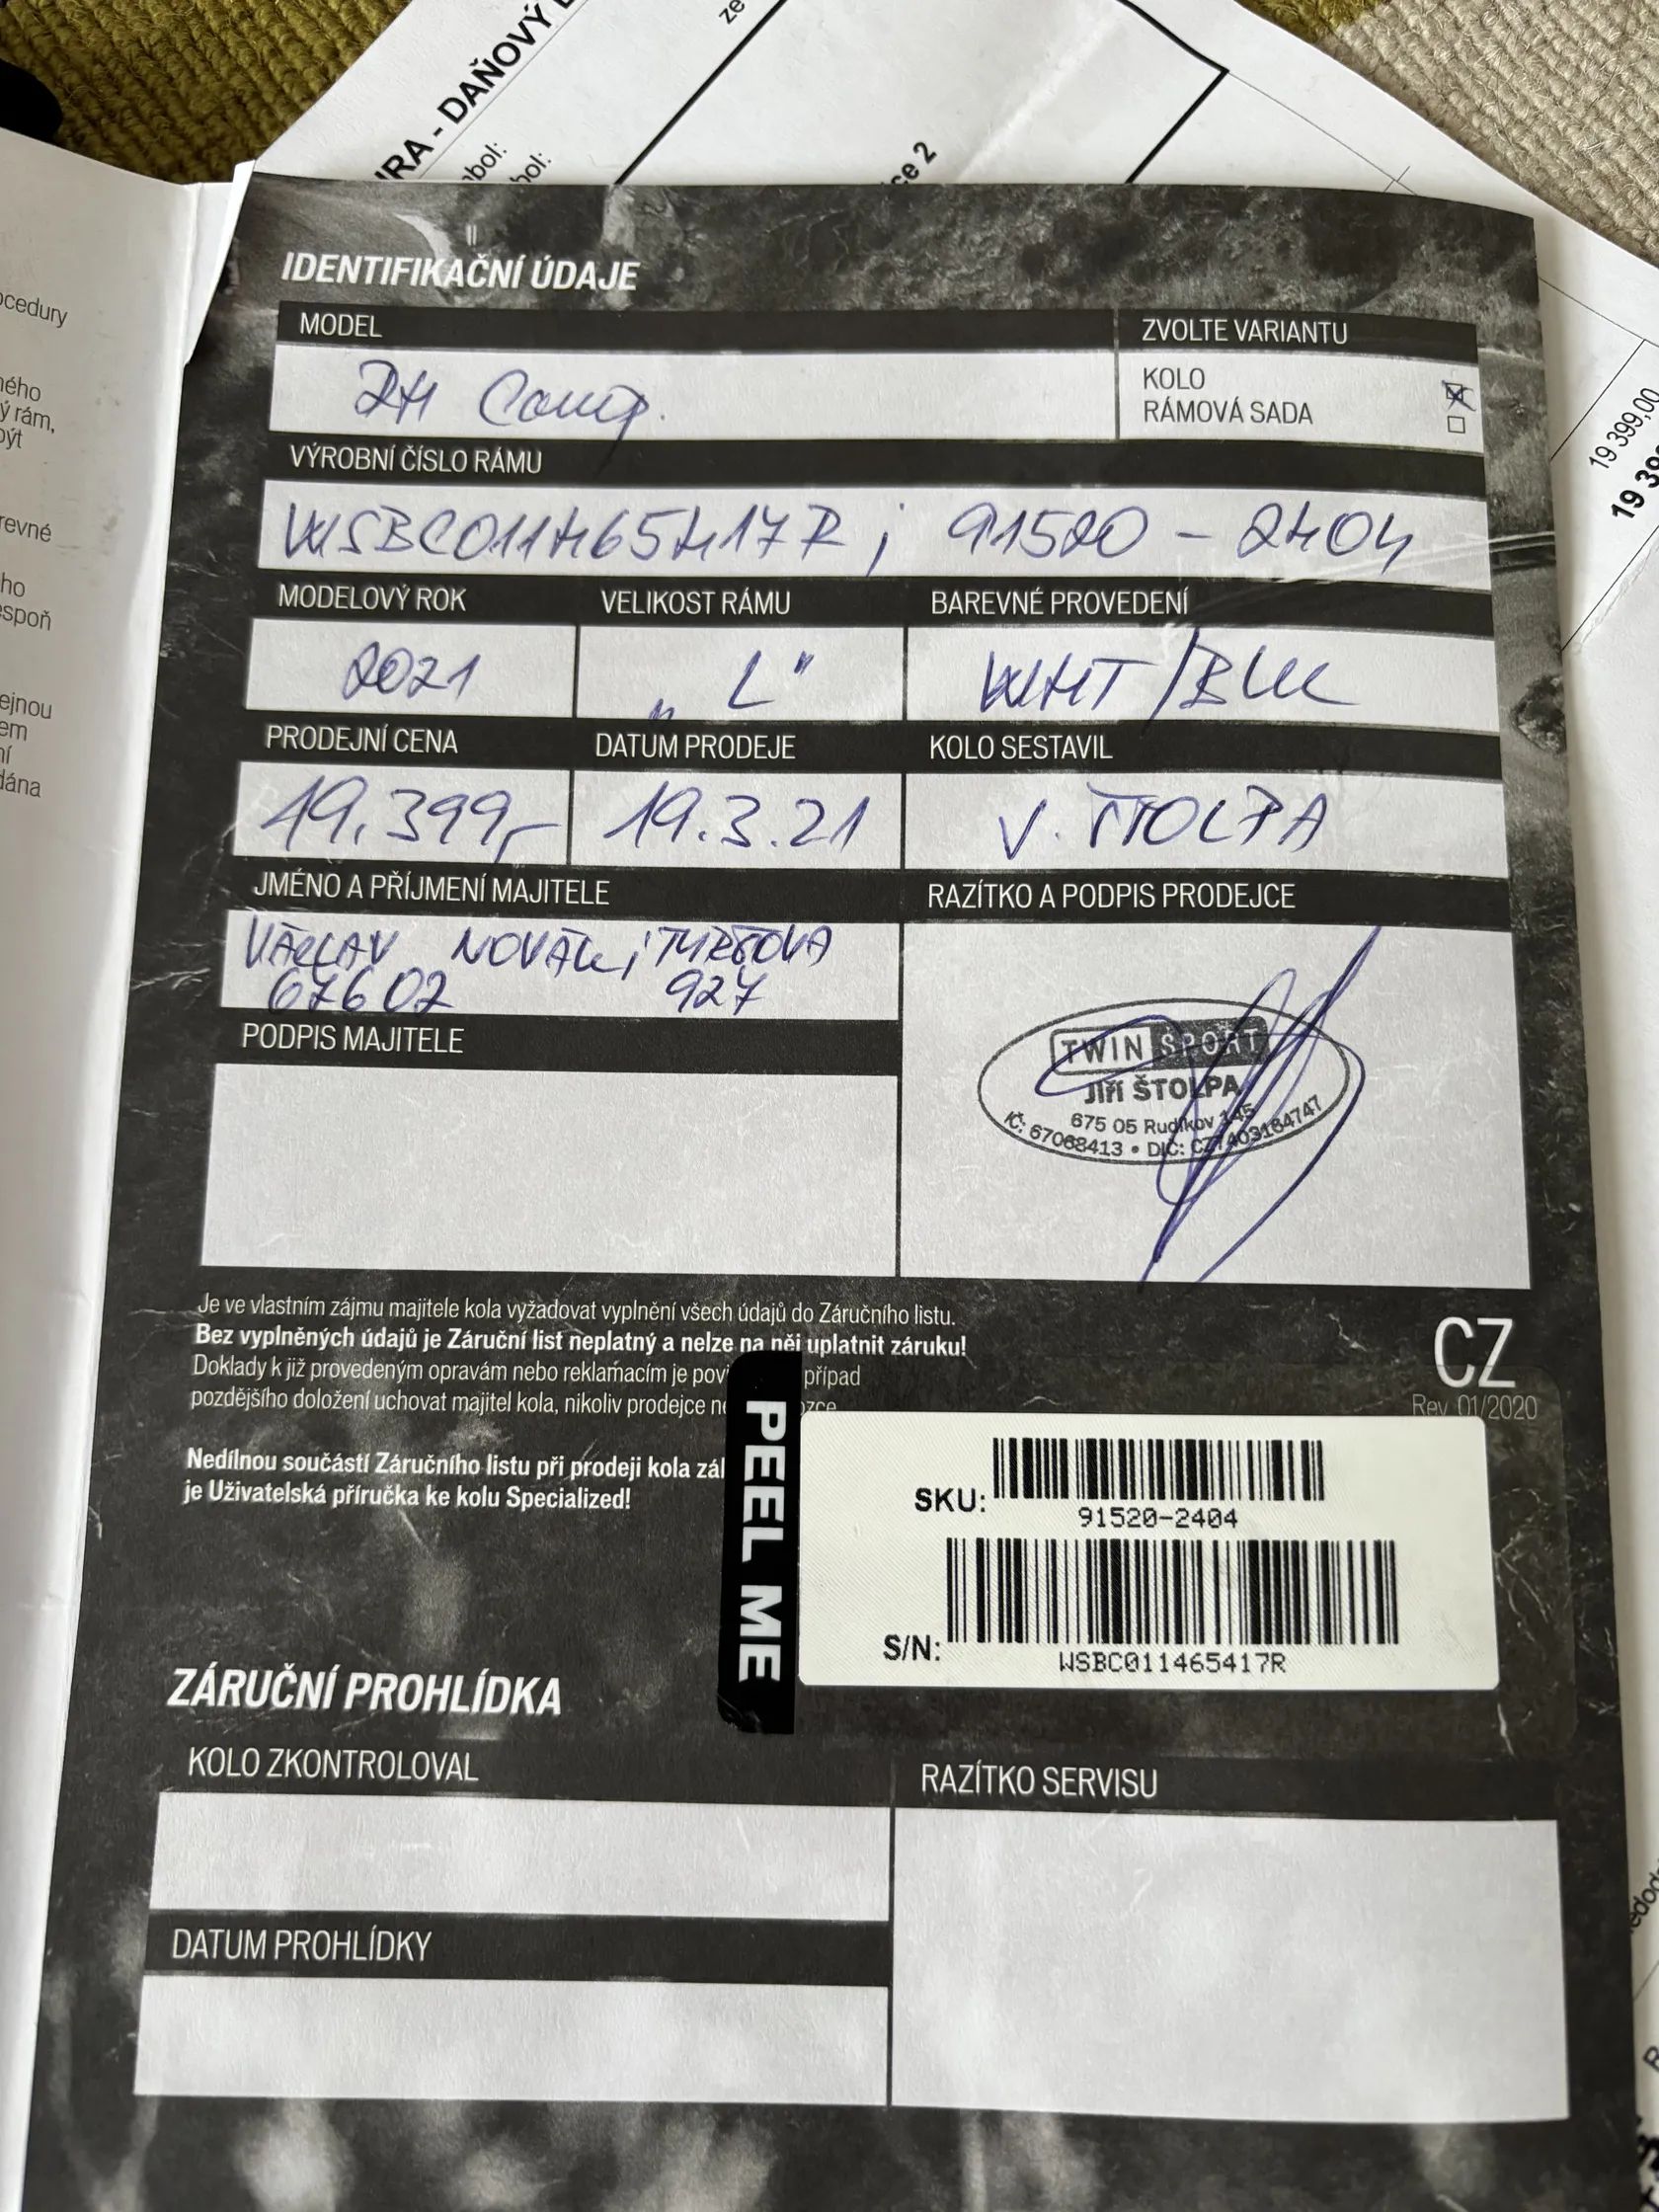 URA - DAŇOVÝ
bol:
bol:
ze
ce 2
19 399,00
ocedury
ného
ý rám,
být
revné
ho
espoň
ejnou
em
ní
dána
IDENTIFIKAČNÍ ÚDAJE
MODEL
ZVOLTE VARIANTU
Comp.
KOLO
RÁMOVÁ SADA
VÝROBNÍ ČÍSLO RÁMU
WSBC011465417R ; 91520 - 2404
MODELOVÝ ROK VELIKOST RÁMU BAREVNÉ PROVEDENÍ
2021 „L" WHT/BLK
PRODEJNÍ CENA DATUM PRODEJE KOLO SESTAVIL
19.399,- 19.3.21 V. ŠTOLPA
JMÉNO A PŘÍJMENÍ MAJITELE RAZÍTKO A PODPIS PRODEJCE
VÁCLAV NOVÁK;
67602 927
PODPIS MAJITELE
TWIN SPORT
Jiří ŠTOLPA
675 05 Rudíkov 145
IČ: 67068413 • DIČ: CZ7403184747
Je ve vlastním zájmu majitele kola vyžadovat vyplnění všech údajů do Záručního listu.
Bez vyplněných údajů je Záruční list neplatný a nelze na něj uplatnit záruku!
Doklady k již provedeným opravám nebo reklamacím je pov případ
pozdějšího doložení uchovat majitel kola, nikoliv prodejce ne ozce
CZ
Rev. 01/2020
Nedílnou součástí Záručního listu při prodeji kola zák
je Uživatelská příručka ke kolu Specialized!
PEEL ME
SKU:
91520-2404
S/N:
WSBC011465417R
ZÁRUČNÍ PROHLÍDKA
KOLO ZKONTROLOVAL RAZÍTKO SERVISU
DATUM PROHLÍDKY